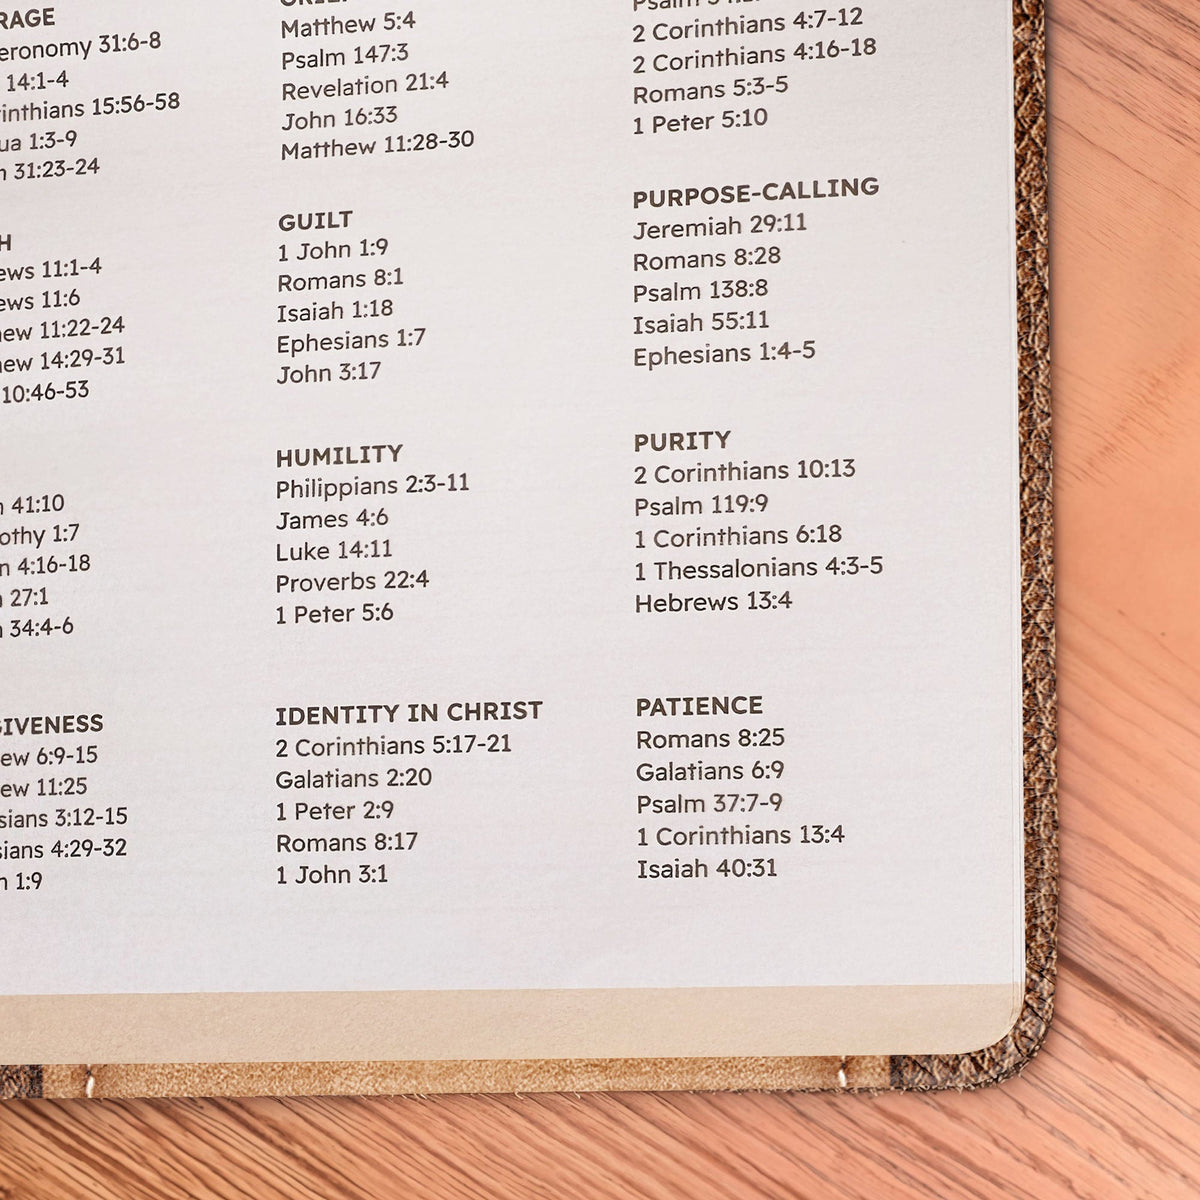 RAGE
eronomy 31:6-8
14:1-4
inthians 15:56-58
ua 1:3-9
31:23-24
H
ews 11:1-4
ews 11:6
ew 11:22-24
ew 14:29-31
10:46-53
41:10
othy 1:7
n 4:16-18
27:1
34:4-6
GIVENESS
ew 6:9-15
ew 11:25
sians 3:12-15
sians 4:29-32
1:9
Matthew 5:4
Psalm 147:3
Revelation 21:4
John 16:33
Matthew 11:28-30
GUILT
1 John 1:9
Romans 8:1
Isaiah 1:18
Ephesians 1:7
John 3:17
HUMILITY
Philippians 2:3-11
James 4:6
Luke 14:11
Proverbs 22:4
1 Peter 5:6
IDENTITY IN CHRIST
2 Corinthians 5:17-21
Galatians 2:20
1 Peter 2:9
Romans 8:17
1 John 3:1
Psalm
2 Corinthians 4:7-12
2 Corinthians 4:16-18
Romans 5:3-5
1 Peter 5:10
PURPOSE-CALLING
Jeremiah 29:11
Romans 8:28
Psalm 138:8
Isaiah 55:11
Ephesians 1:4-5
PURITY
2 Corinthians 10:13
Psalm 119:9
1 Corinthians 6:18
1 Thessalonians 4:3-5
Hebrews 13:4
PATIENCE
Romans 8:25
Galatians 6:9
Psalm 37:7-9
1 Corinthians 13:4
Isaiah 40:31